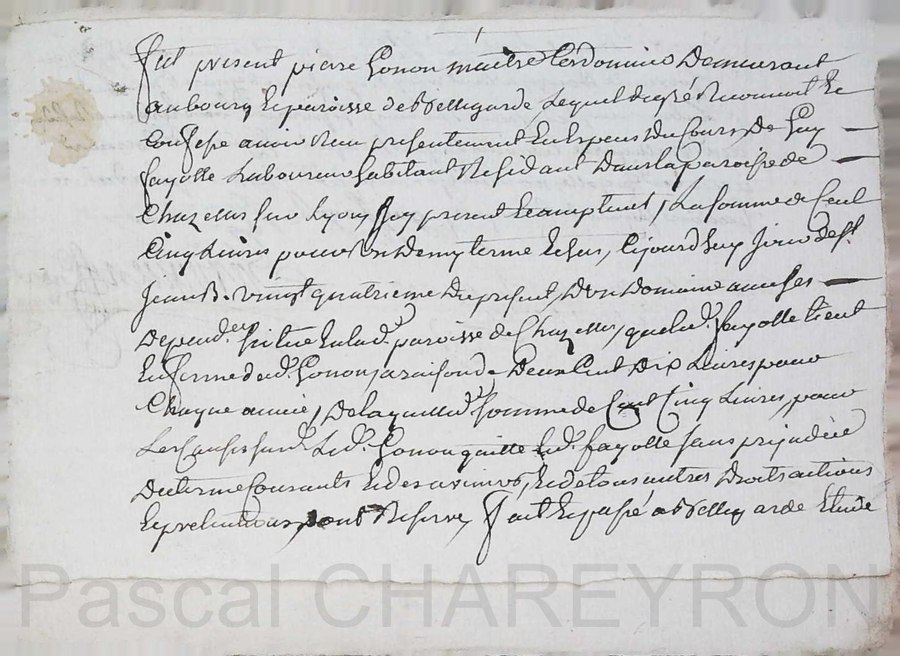 fut present pierre Gonon maitre Cordonnier Demeurant
au bourg et paroisse de Bellegarde Lequel de gré Reconnoit et
Confesse avoir Receu presentement En Especes Du Cours De Guy
fayolle Laboureur habitant Residant Dans la paroisse de
Chazelles sur Lyon, Icy present acceptant, La somme de Cent
Cinq Livres pour un Demy terme Escheu, Cejourdhuy Jour de st
Jean B. vingt quatrieme Du present, D'un Domaine avec ses
Depend.es situé En lad. paroisse de Chazelles, que led. fayolle tient
En ferme dud. Gonon, a raison de Deux Cent Dix Livres pour
Chaque année, De laquelle d. somme de Cent Cinq Livres, pour
Les Causes susd. Led. Gonon quitte Led. fayolle sans prejudice
Du terme Courant Et des avenirs, Et de tous autres Droits actions
Et pretentions, Reserve, fait Et passé a Bellegarde Etude
Pascal CHAREYRON